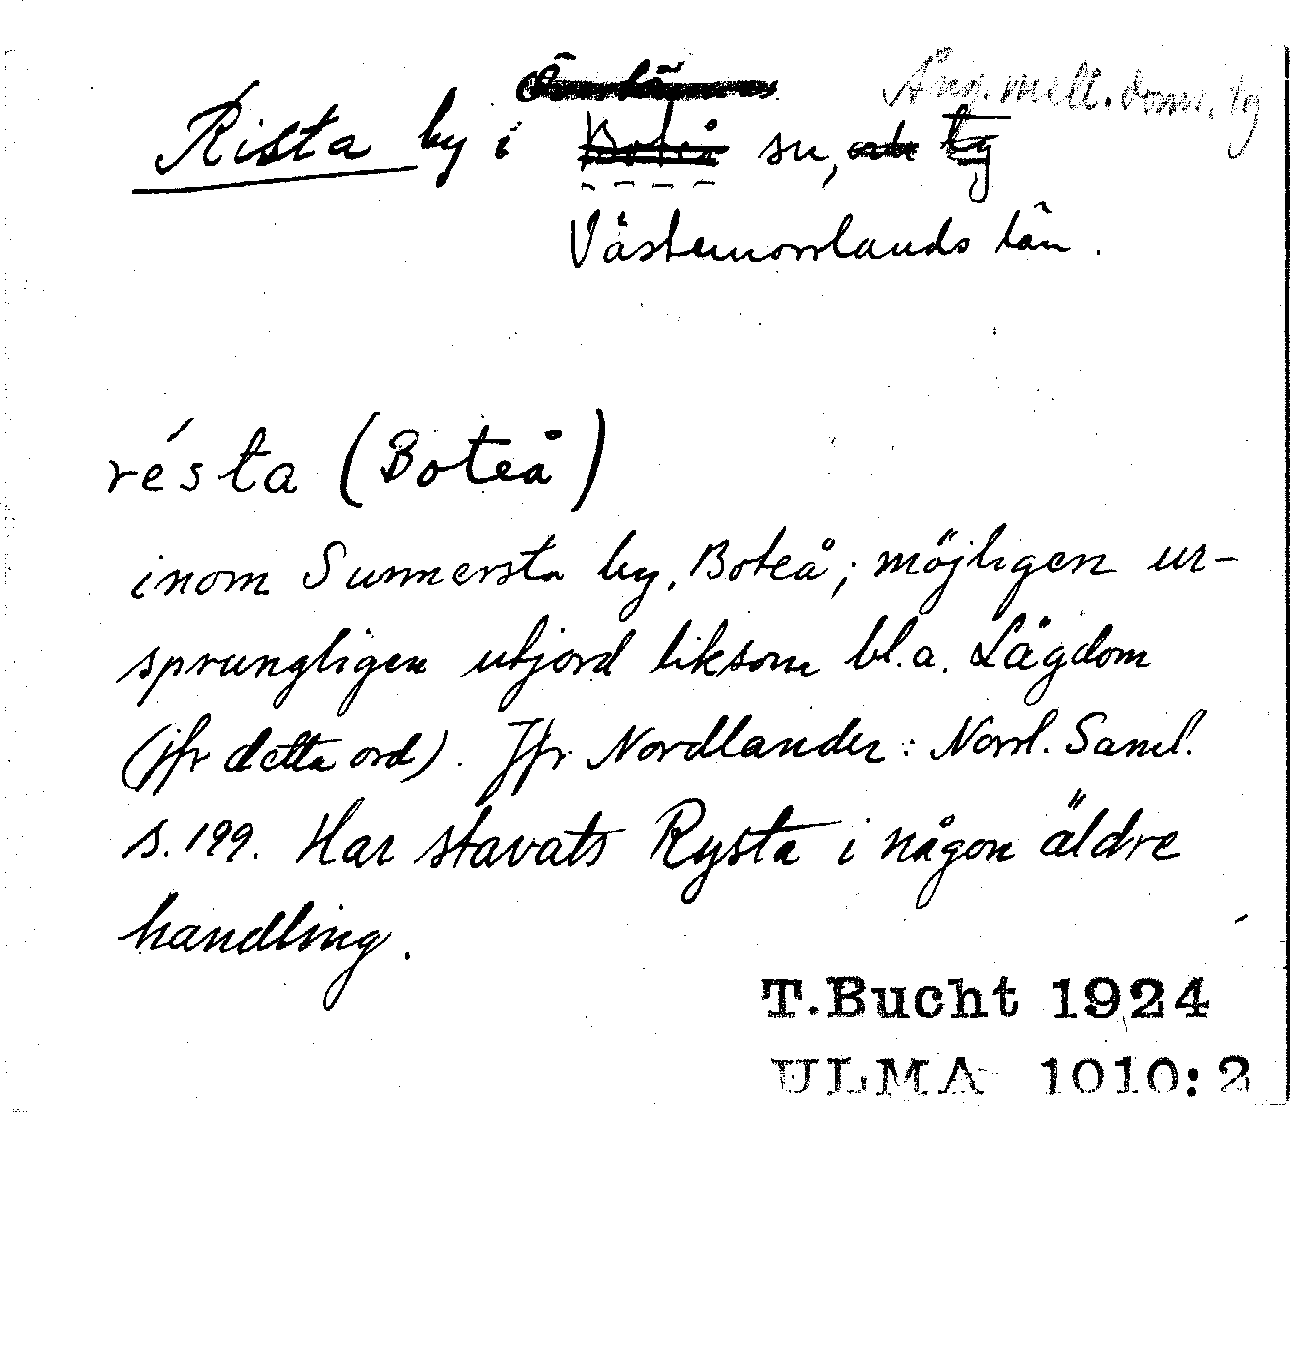 Överlännäs Ång. mell. doms. tg
Rista by i Boteå sn, och tg
Västernorrlands län.
résta (Boteå)
inom Sunnersta by, Boteå; möjligen ur-
sprungligen utjord liksom bl.a. Lägdom
(jfr detta ord). Jfr Nordlander: Norrl. Saml.
s. 199. Har stavats Rysta i någon äldre
handling.
T.Bucht 1924
ULMA 1010:2